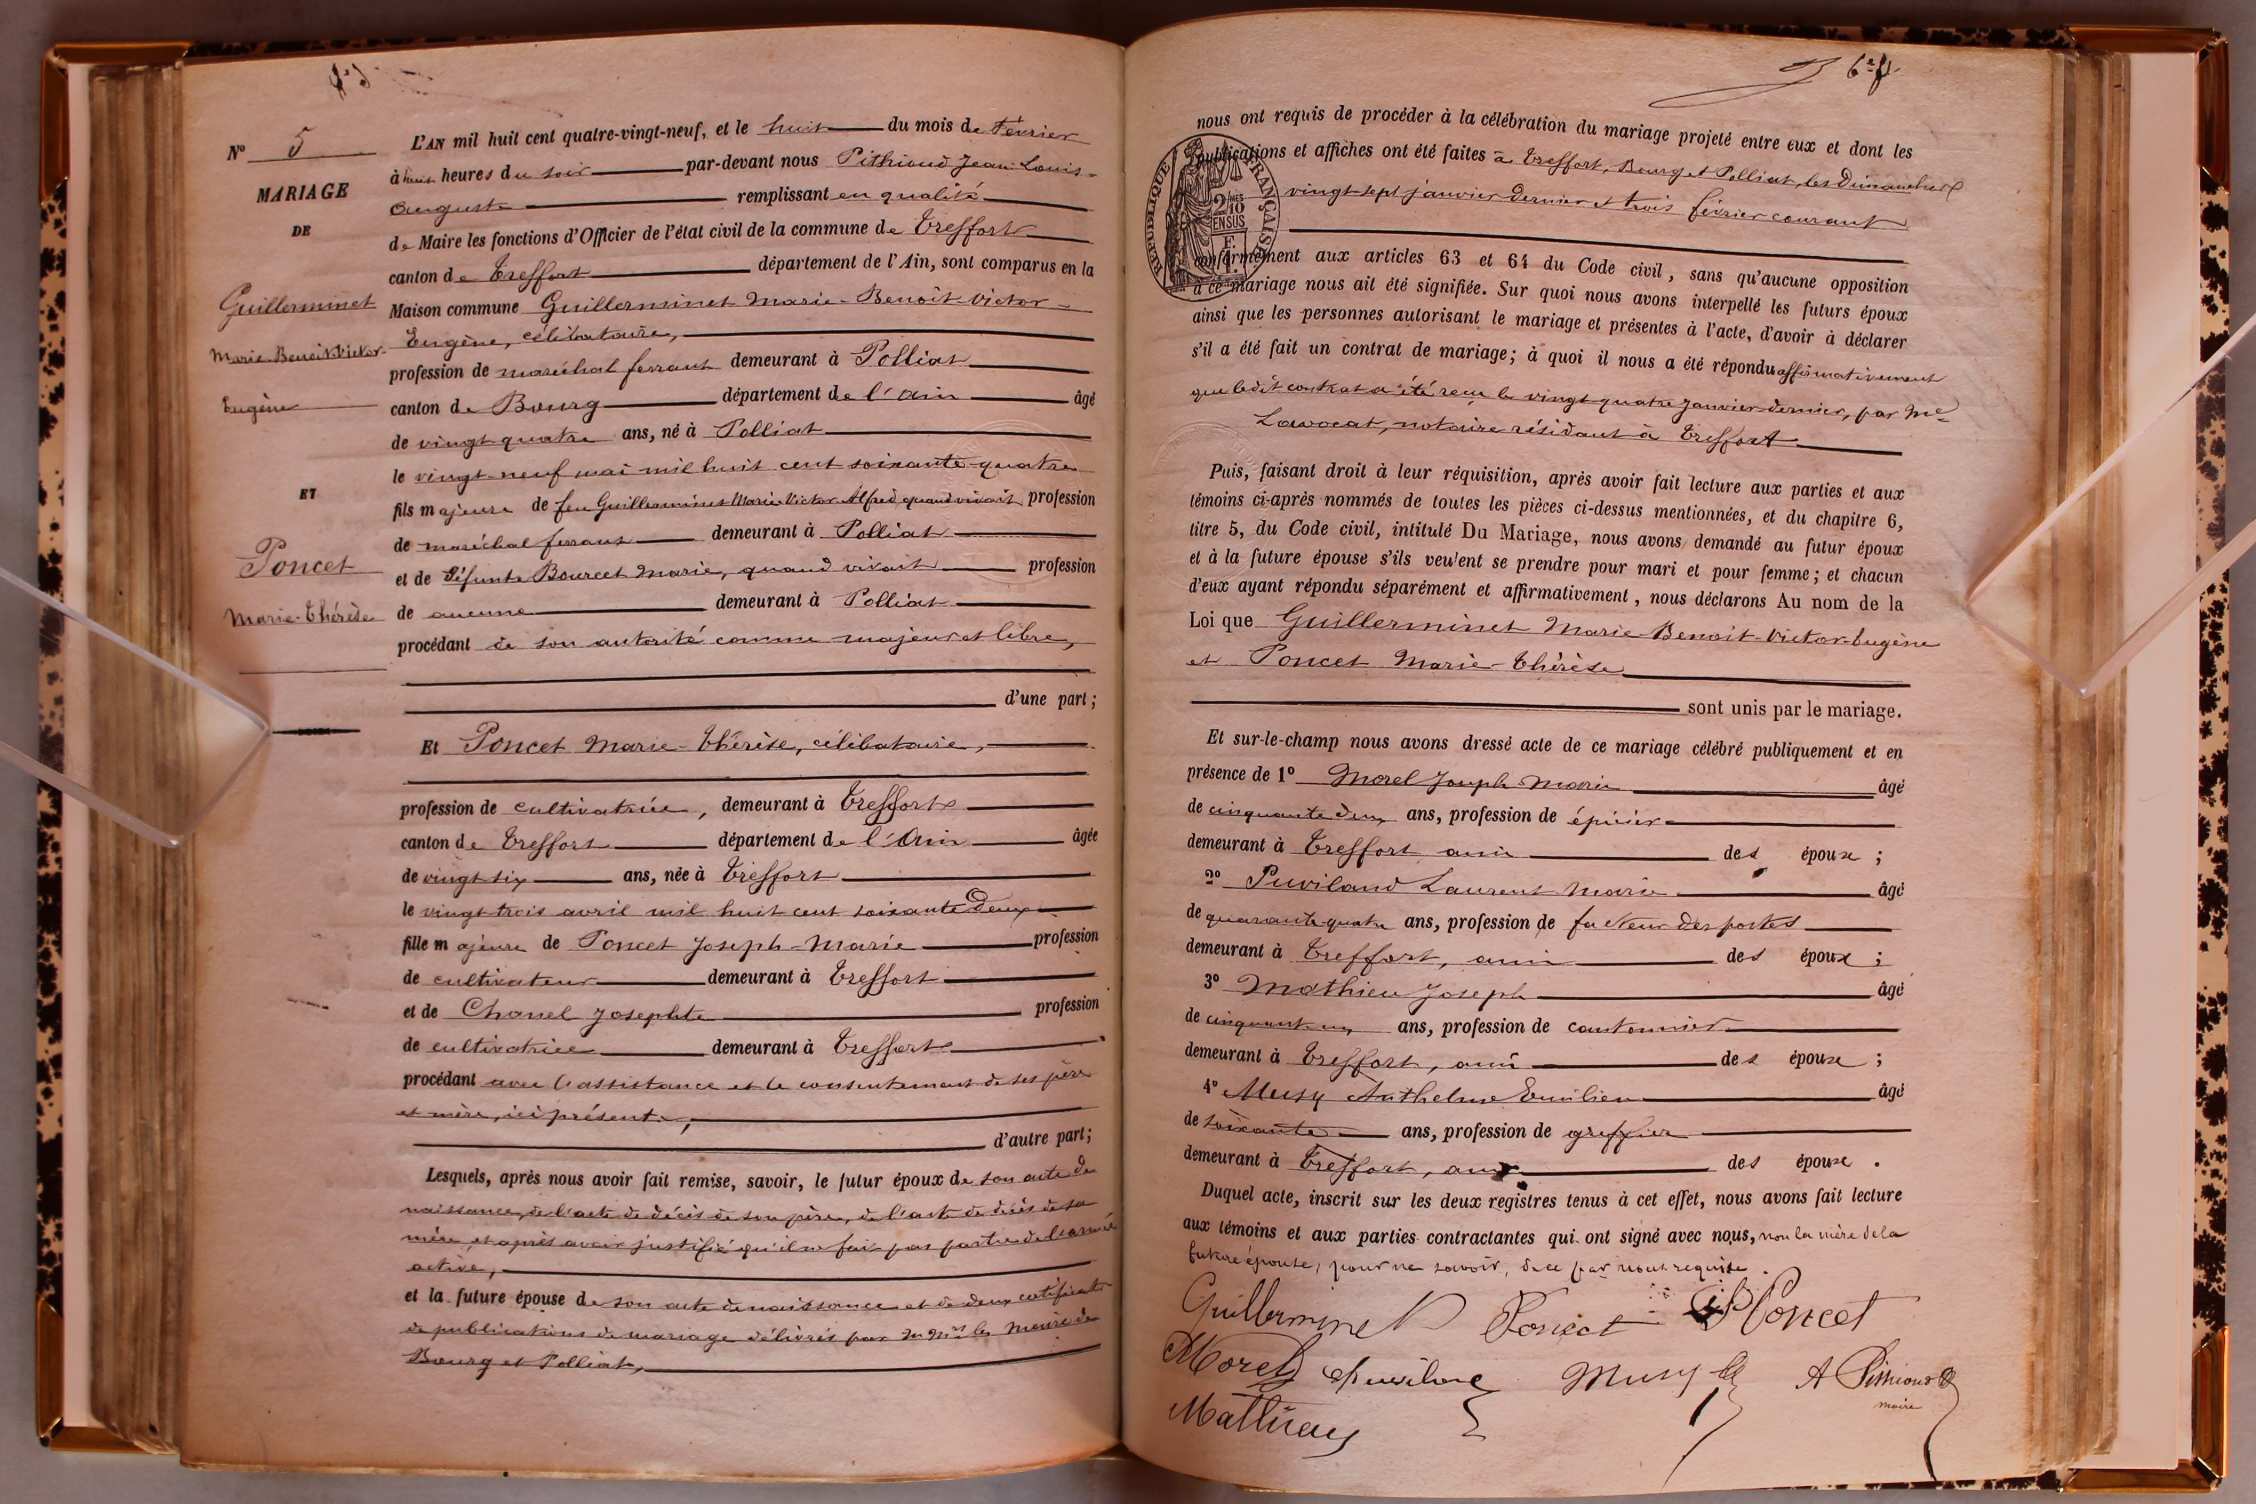 Nº 5
MARIAGE
DE
Guillerminet
Marie-Benoit-Victor-
Eugène
ET
Poncet
Marie-Thérèse
L'AN mil huit cent quatre-vingt-neuf, et le huit du mois de Février
à huit heures du soir par-devant nous Pithioud Jean-Louis-
Auguste remplissant en qualité
de Maire les fonctions d'Officier de l'état civil de la commune de Treffort
canton de Treffort département de l'Ain, sont comparus en la
Maison commune Guillerminet Marie-Benoît-Victor-
Eugène, célibataire,
profession de maréchal ferrant demeurant à Polliat
canton de Bourg département de l'Ain âgé
de vingt quatre ans, né à Polliat
le vingt-neuf mai mil huit cent soixante-quatre
fils majeure de feu Guillerminet Marie Victor Alfred quand vivait profession
de maréchal ferrant demeurant à Polliat
et de défunte Bourcet Marie, quand vivait profession
de aucune demeurant à Polliat
procédant de son autorité comme majeur et libre,
d'une part;
Et Poncet Marie-Thérèse, célibataire,
profession de cultivatrice, demeurant à Treffort
canton de Treffort département de l'Ain âgée
de vingt six ans, née à Treffort
le vingt trois avril mil huit cent soixante Deux
fille majeure de Poncet Joseph-Marie profession
de cultivateur demeurant à Treffort
et de Chanel Josephte profession
de cultivatrice demeurant à Treffort
procédant avec l'assistance et le consentement de ses père
et mère, ici présents,
d'autre part;
Lesquels, après nous avoir fait remise, savoir, le futur époux de son acte de
naissance, de l'acte de décès de son père, de l'acte de décès de sa
mère, et après avoir justifié qu'il ne fait pas partie de l'armée
active,
et la future épouse de son acte de naissance et de deux certificats
de publications de mariage délivrés par MMrs les Maires de
Bourg et Polliat,
6e f.
nous ont requis de procéder à la célébration du mariage projeté entre eux et dont les
publications et affiches ont été faites à Treffort, Bourg et Polliat, les Dimanches
vingt-sept janvier dernier et trois février courant
RÉPUBLIQUE FRANÇAISE
2/10
EN SUS
conformément aux articles 63 et 64 du Code civil, sans qu'aucune opposition
à ce mariage nous ait été signifiée. Sur quoi nous avons interpellé les futurs époux
ainsi que les personnes autorisant le mariage et présentes à l'acte, d'avoir à déclarer
s'il a été fait un contrat de mariage; à quoi il nous a été répondu affirmativement
que ledit contrat a été reçu le vingt-quatre janvier dernier, par Me
Lavocat, notaire résidant à Treffort
Puis, faisant droit à leur réquisition, après avoir fait lecture aux parties et aux
témoins ci-après nommés de toutes les pièces ci-dessus mentionnées, et du chapitre 6,
titre 5, du Code civil, intitulé Du Mariage, nous avons demandé au futur époux
et à la future épouse s'ils veulent se prendre pour mari et pour femme; et chacun
d'eux ayant répondu séparément et affirmativement, nous déclarons Au nom de la
Loi que Guillerminet Marie-Benoit-Victor-Eugène
et Poncet Marie-Thérèse
sont unis par le mariage.
Et sur-le-champ nous avons dressé acte de ce mariage célébré publiquement et en
présence de 1º Morel Joseph Marie âgé
de cinquante deux ans, profession de épicier
demeurant à Treffort ami des époux;
2º Puviland Laurent Marie âgé
de quarante quatre ans, profession de facteur des postes
demeurant à Treffort, ami des époux;
3º Mathieu Joseph âgé
de cinquante un ans, profession de cantonnier
demeurant à Treffort, ami des époux;
4º Musy Anthelme Emilien âgé
de soixante ans, profession de greffier
demeurant à Treffort, ami des époux.
Duquel acte, inscrit sur les deux registres tenus à cet effet, nous avons fait lecture
aux témoins et aux parties contractantes qui ont signé avec nous, non la mère de la
future épouse, pour ne savoir, de ce par nous requise.
Guillerminet Poncet Poncet
Morel Puviland Musy A Pithioud
maire
Mathieu